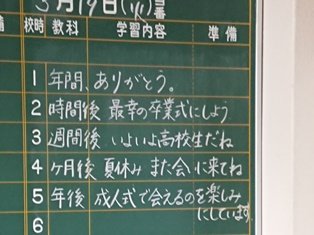 3月19日(火)
校時 教科 学習内容 準備
1 年間、ありがとう。
2 時間後 最幸の卒業式にしよう
3 週間後 いよいよ高校生だね
4 ヶ月後 夏休み また会いに来てね
5 年後 成人式で会えるのを楽しみ
にしています。
6